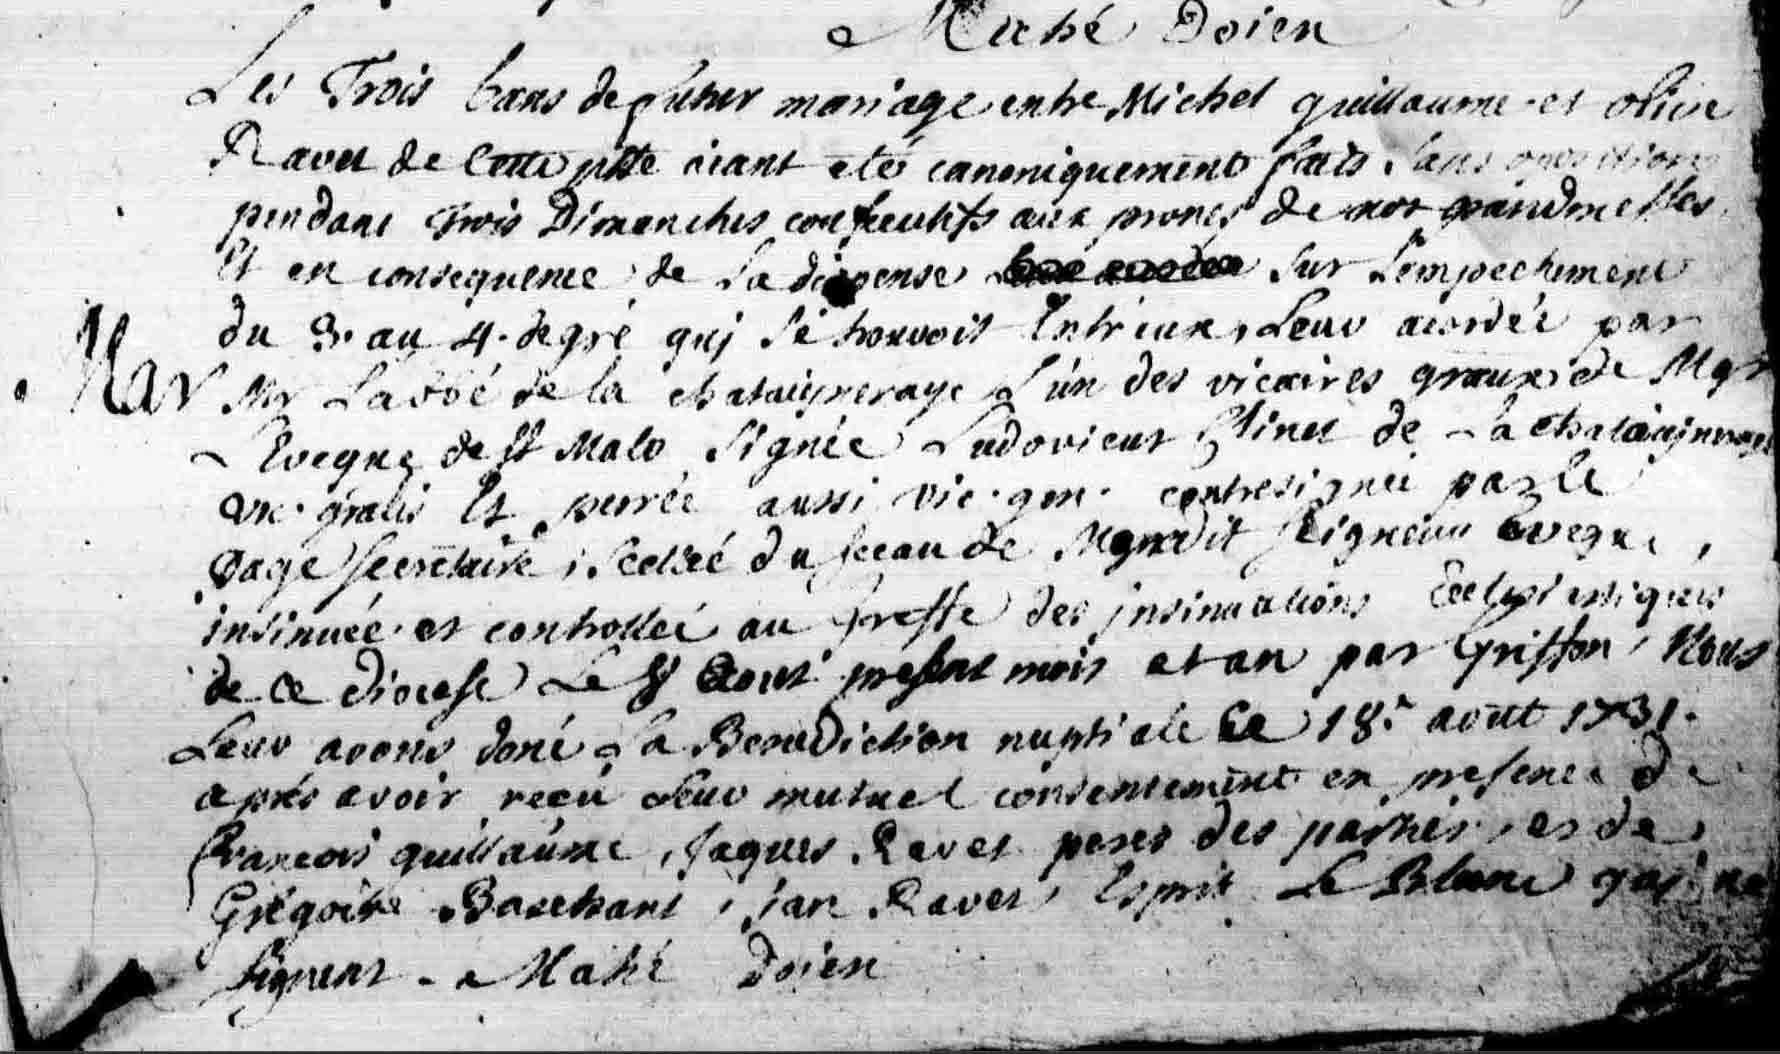 Mahé Doien
Les Trois bans de futur mariage entre Michel guillaume et olive
Ravet de Cette psse aiant eté canoniquement faits sans oposition
pendant Trois Dimanches consecutifs aux prones de nos grandmesses
Et en consequence de La dispense sur L'empechement
du 3. au 4. degré qui se trouvoit Entr'eux, Leur acordée par
Mar Mr L'abbé de la chataigneraye L'un des vicaires graux de Mgr
L'Eveque de St Malo, signée Ludovicus de La chataigneraye
vic. gralis Et perrée aussi vic. gen. contresignée par le
page secretaire, scellée du sceau de Mgnrdit seigneur Eveque,
insinuée et controllée au greffe des insinuations Eclesiastiques
de ce diocese Le 8 aout present mois et an par Griffon, Nous
Leur avons doné La Benediction nuptiale Ce 18. août 1731.
aprés avoir reçu Leur mutuel consentement en presence de
Francois guillaume, Jaques Ravet peres des parties, et de
Grégoire Jan Ravet, Esprit Le Blanc qui ne
signent - Mahé Doien